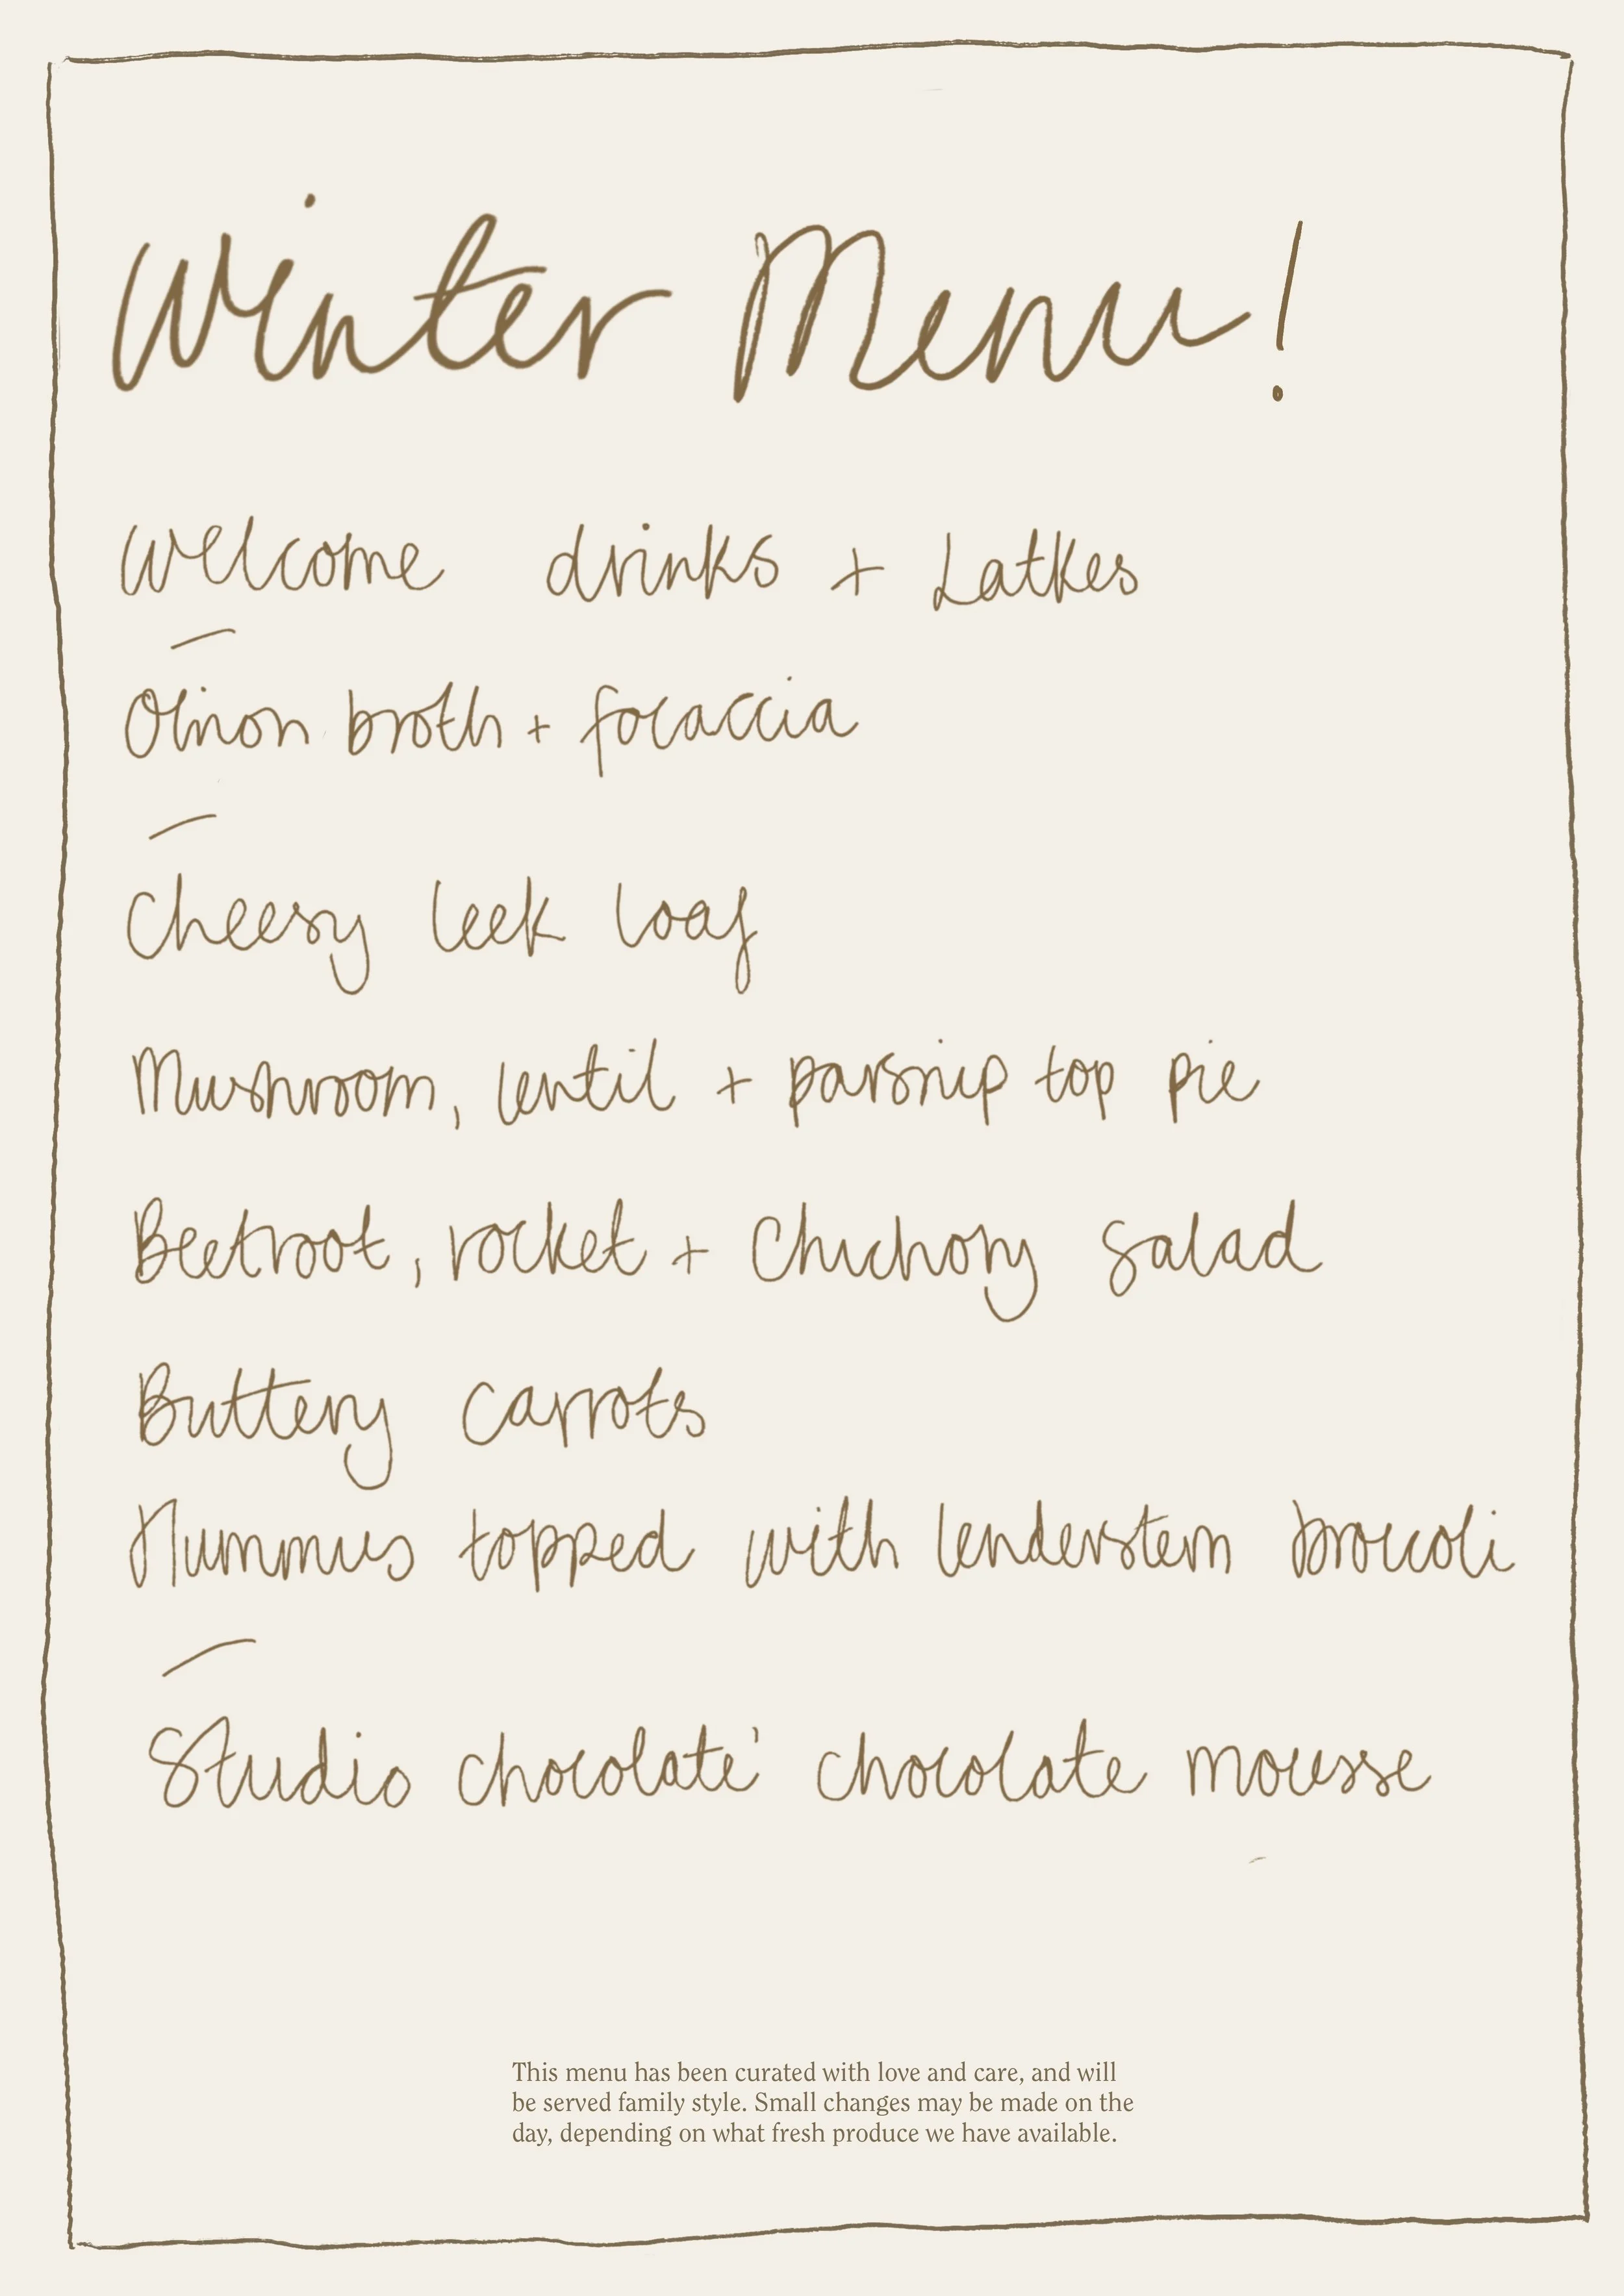 Winter Menu!
Welcome drinks + Latkes
Oinon broth + focaccia
Cheesy leek loaf
Mushroom, lentil + parsnip top pie
Beetroot, rocket + Chichory salad
Buttery carrots
Hummus topped with tenderstem broccoli
Studio chocolate' chocolate mousse
This menu has been curated with love and care, and will
be served family style. Small changes may be made on the
day, depending on what fresh produce we have available.